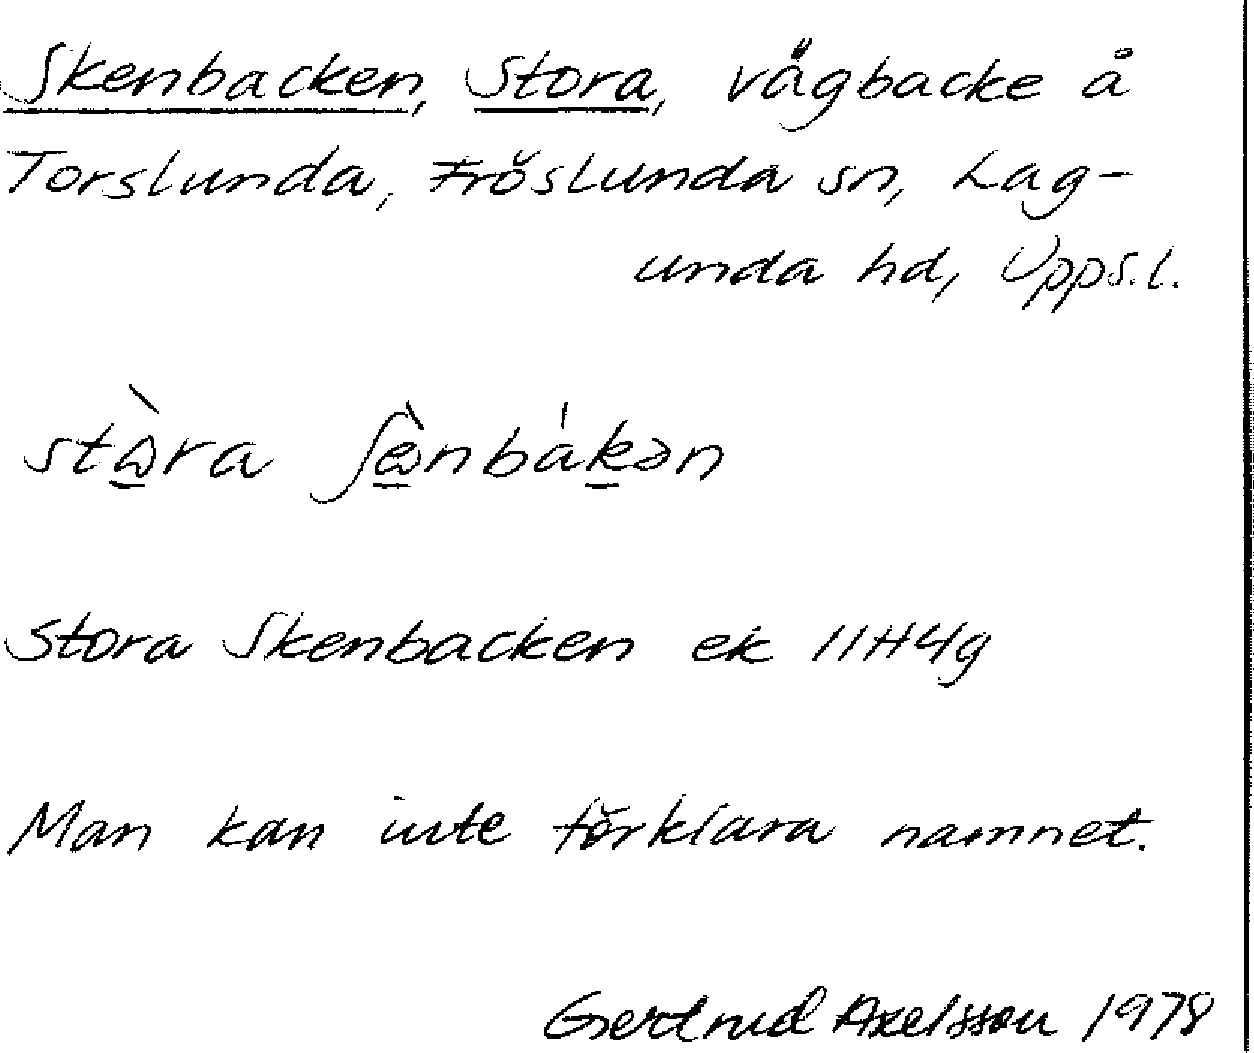 Skenbacken, Stora, vägbacke å
Torslunda, Fröslunda sn, Lag-
unda hd, Upps.l.
stὼ̲ra ʃè̲nbák̲ən
Stora Skenbacken ek 11H4g
Man kan inte förklara namnet.
Gertrud Axelsson 1978